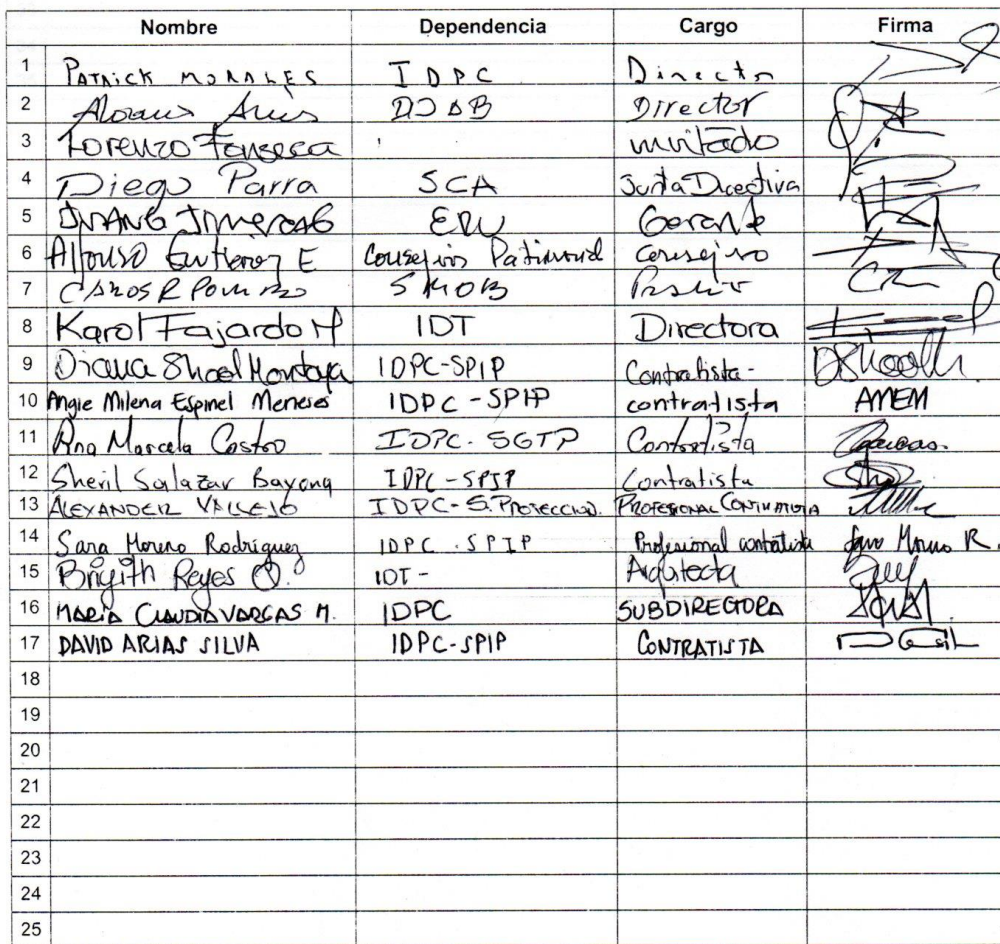 Nombre Dependencia Cargo Firma
1 PATRICK MORALES IDPC Director
2 Arias Director
3 Lorenzo Fonseca invitado
4 Diego Parra SCA Junta Directiva
5 ERU Gerante
6 Alfonso Gutierrez E Consejero
7 CARLOS R
8 Karol Fajardo M IDT Directora
9 Diana Shool Montoya IDPC-SPIP Contratista- DShool
10 Angie Milena Espinel Meneses IDPC - SPIP contratista AMEM
11 Ana Marcela Castro IDPC-SGTP Contratista
12 Sheril Salazar Bayona IDPC-SPIP Contratista
13 ALEXANDER VALLEJO IDPC-S. PROTECCION. PROFESIONAL CONTRATISTA
14 Sara Moreno Rodríguez IDPC . SPIP Profesional contratista Sara Moreno R.
15 Brigith Reyes O. IDT - Arquitecta
16 MARÍA CLAUDIA VARGAS M. IDPC SUBDIRECTORA
17 DAVID ARIAS SILVA IDPC-SPIP CONTRATISTA
18
19
20
21
22
23
24
25